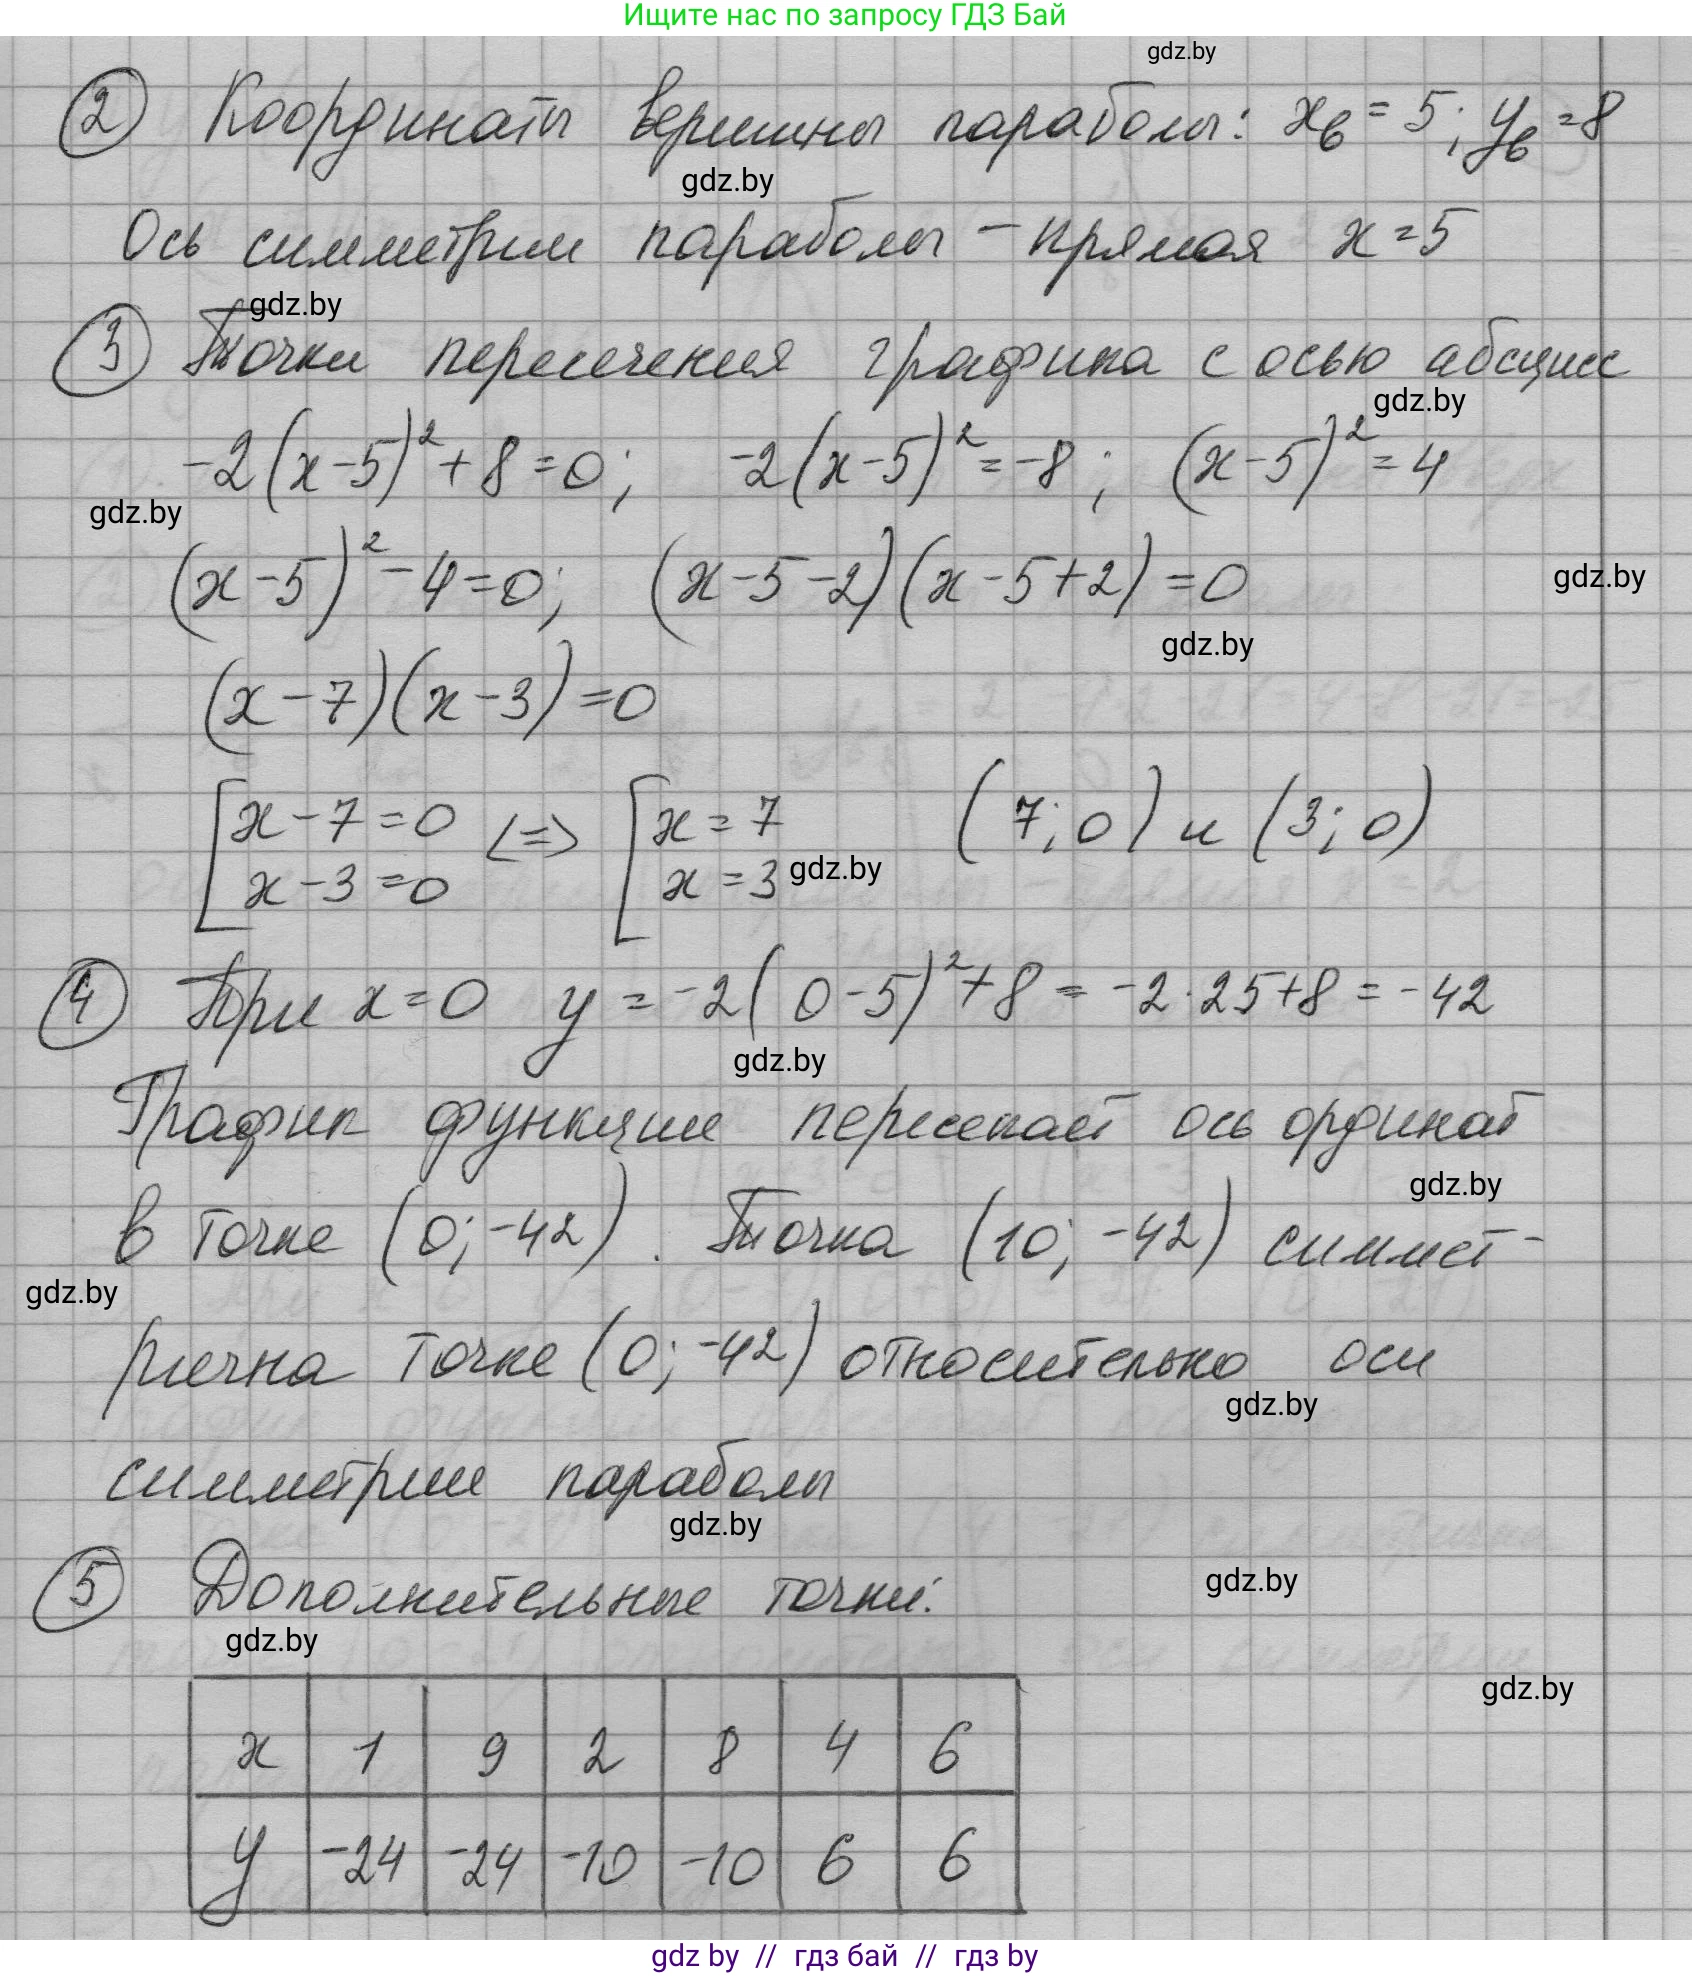 Ищите нас по запросу ГДЗ Бай
gdz.by
② Координаты вершины параболы: xв = 5; yв = 8
gdz.by
Ось симметрии параболы – прямая x = 5
gdz.by
③ Точки пересечения графика с осью абсцисс
gdz.by
-2(x-5)²+8=0; -2(x-5)²=-8; (x-5)²=4
gdz.by
(x-5)²-4=0; (x-5-2)(x-5+2)=0
gdz.by
gdz.by
(x-7)(x-3)=0
[x-7=0 <=> [x=7 (7;0) и (3;0)
x-3=0 x=3
gdz.by
④ При x=0 y=-2(0-5)²+8=-2·25+8=-42
gdz.by
График функции пересекает ось ординат
gdz.by
в точке (0;-42). Точка (10;-42) симмет-
gdz.by
рична точке (0;-42) относительно оси
gdz.by
симметрии параболы
gdz.by
⑤ Дополнительные точки:
gdz.by
gdz.by
gdz.by
x 1 9 2 8 4 6
y -24 -24 -10 -10 6 6
gdz by // гдз бай // гдз by